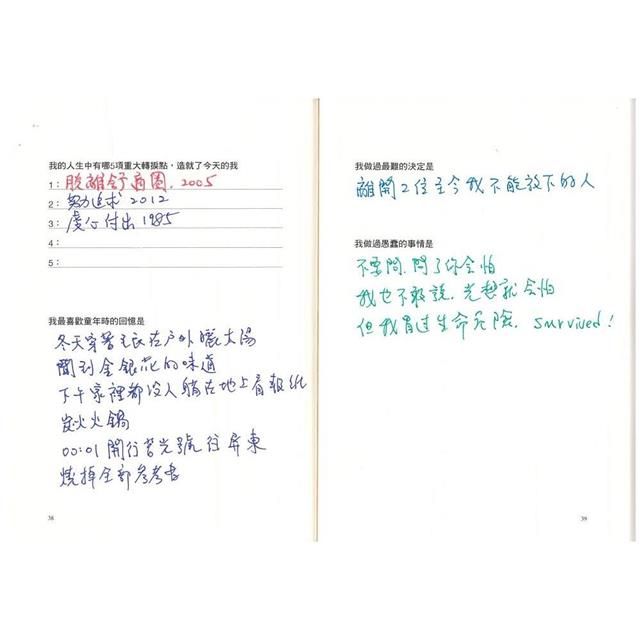 我的人生中有哪5項重大轉捩點，造就了今天的我
1：脫離舒適圈. 2005
2：努力追求 2012
3：虔心付出 1985
4：
5：
我最喜歡童年時的回憶是
冬天穿著毛衣在戶外曬太陽
聞到金銀花的味道
下午家裡都沒人躺在地上看報紙
炭火火鍋
00:01 開行莒光號往屏東
燒掉全部參考書
38
我做過最難的決定是
離開2位至今我不能放下的人
我做過愚蠢的事情是
不要問. 問了你會怕
我也不敢說. 光想就會怕
但我冒過生命危險. survived!
39